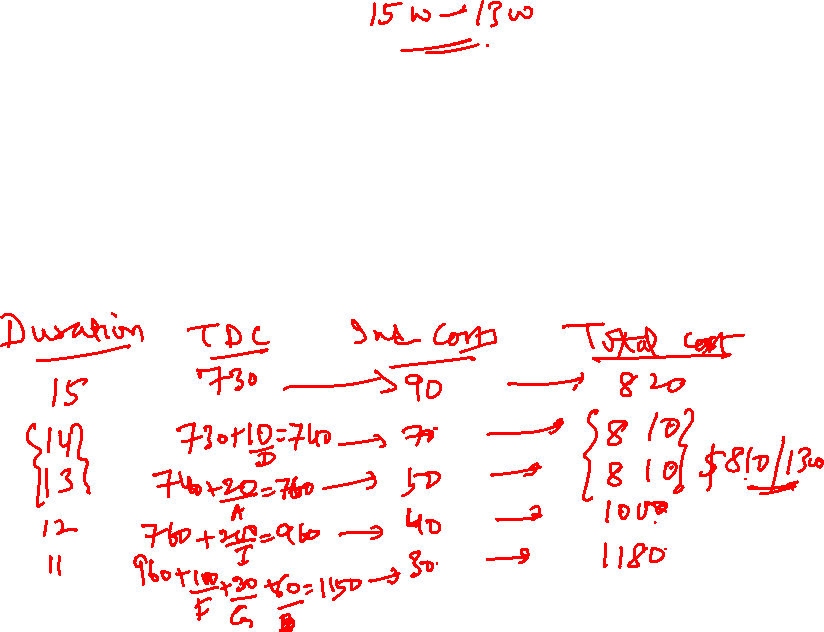 15w - 13w
Duration TDC Ind Costs Total cost
15 730 → 90 → 820
14 730+10=740 → 70 → 810
D
13 740+20=760 → 50 → 810 $810/13w
A
12 760+200=960 → 40 → 1000
I
11 960+100+30+60=1150 → 30 → 1180
F G B